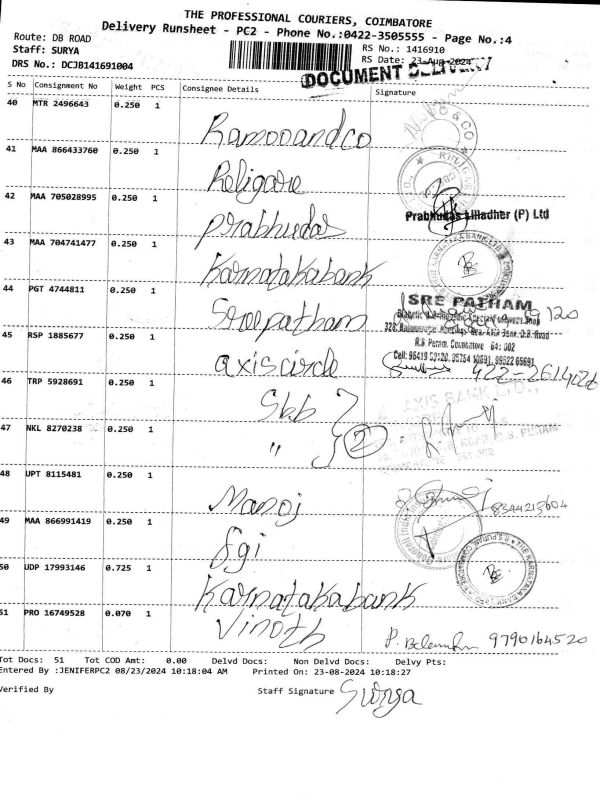 THE PROFESSIONAL COURIERS, COIMBATORE
Delivery Runsheet - PC2 - Phone No.:0422-3505555 - Page No.:4
Route: DB ROAD
RS No.: 1416910
Staff: SURYA
RS Date: 23-Aug-2024
DRS No.: DCJB141691004
DOCUMENT DELIVERY
S No Consignment No Weight PCS Consignee Details Signature
40 MTR 2496643 0.250 1 Ramooandco
& CO
41 MAA 866433760 0.250 1 Religare
42 MAA 705028995 0.250 1 Prabhudas
Prabhudas Lilladher (P) Ltd
43 MAA 704741477 0.250 1 Karnatakabank
44 PGT 4744811 0.250 1 Sreepatham
SRE PATHAM
R.S. Puram, Coimbatore
45 RSP 1885677 0.250 1 axiscircle
422-2614026
46 TRP 5928691 0.250 1 Sbb
AXIS BANK LTD.,
47 NKL 8270238 0.250 1 " 2
R.S. PURAM
48 UPT 8115481 0.250 1 Manoj
8344213604
49 MAA 866991419 0.250 1 Sgi
50 UDP 17993146 0.725 1 Karnatakabank
51 PRO 16749528 0.070 1 Vinoth
9790164520
Tot Docs: 51 Tot COD Amt: 0.00 Delvd Docs: Non Delvd Docs: Delvy Pts:
Entered By :JENIFERPC2 08/23/2024 10:18:04 AM Printed On: 23-08-2024 10:18:27
Verified By Staff Signature Surya